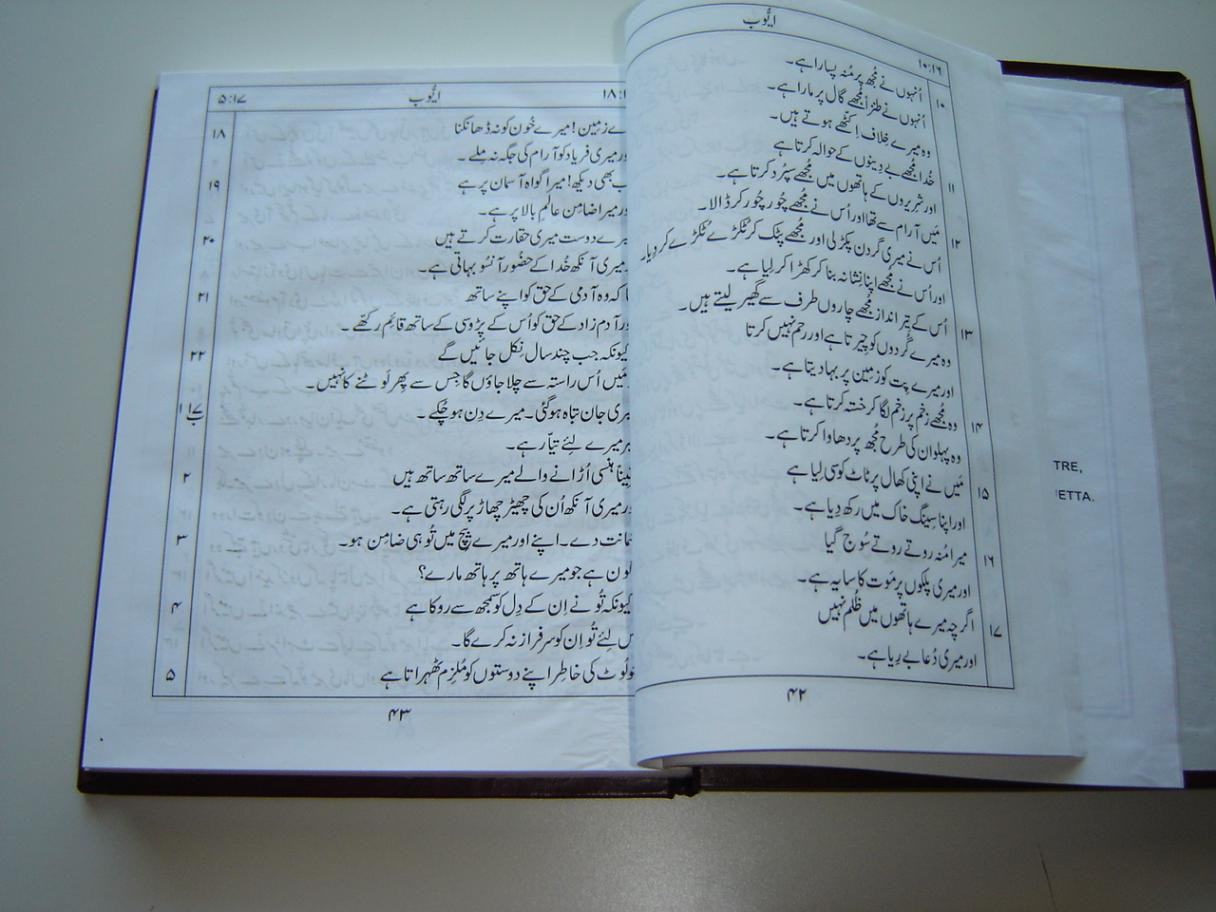 ایُّوب
۱۰:۱۶
۱۰ اُنہوں نے مُجھ پر مُنہ پسارا ہے۔
اُنہوں نے طنزاً مُجھے گال پر مارا ہے۔
وہ میرے خِلاف اِکٹھے ہوتے ہیں۔
۱۱ خُدا مُجھے بے دِینوں کے حوالہ کرتا ہے
اور شرِیروں کے ہاتھوں میں مُجھے سپُرد کرتا ہے۔
۱۲ مَیں آرام سے تھا اور اُس نے مُجھے چُور چُور کر ڈالا۔
اُس نے میری گردن پکڑ لی اور مُجھے پٹک کر ٹکڑے ٹکڑے کر دِیا۔
اور اُس نے مُجھے اپنا نِشانہ بنا کر کھڑا کر لِیا ہے۔
۱۳ اُس کے تِیر انداز مُجھے چاروں طرف سے گھیر لیتے ہیں۔
وہ میرے گُردوں کو چِیرتا ہے اور رحم نہیں کرتا
اور میرے پِت کو زمِین پر بہا دیتا ہے۔
۱۴ وہ مُجھے زخم پر زخم لگا کر خستہ کرتا ہے۔
وہ پہلوان کی طرح مُجھ پر دھاوا کرتا ہے۔
۱۵ مَیں نے اپنی کھال پر ٹاٹ کو سی لِیا ہے
اور اپنا سِینگ خاک میں رکھ دِیا ہے۔
۱۶ میرا مُنہ روتے روتے سُوج گیا
اور میری پلکوں پر مَوت کا سایہ ہے۔
۱۷ اگرچہ میرے ہاتھوں میں ظُلم نہیں
اور میری دُعا بے رِیا ہے۔
۴۲
۱۸:۱
ایُّوب
۵:۱۷
۱۸ زمِین! میرے خُون کو نہ ڈھانکنا
میری فریاد کو آرام کی جگہ نہ مِلے۔
۱۹ بھی دیکھ! میرا گواہ آسمان پر ہے
میرا ضامِن عالمِ بالا پر ہے۔
۲۰ دوست میری حقارت کرتے ہیں
میری آنکھ خُدا کے حضُور آنسُو بہاتی ہے۔
۲۱ کہ وہ آدمی کے حق کو اپنے ساتھ
آدم زاد کے حق کو اُس کے پڑوسی کے ساتھ قائِم رکھّے۔
۲۲ کیونکہ جب چند سال نِکل جائیں گے
مَیں اُس راستہ سے چلا جاؤں گا جِس سے پِھر لَوٹنے کا نہیں۔
باب ۱۷ ۱ جان تباہ ہو گئی۔ میرے دِن ہو چُکے۔
میرے لِئے تیّار ہے۔
۲ ہنسی اُڑانے والے میرے ساتھ ساتھ ہیں
میری آنکھ اُن کی چھیڑ چھاڑ پر لگی رہتی ہے۔
۳ دے۔ اپنے اور میرے بِیچ میں تُو ہی ضامِن ہو۔
ہے جو میرے ہاتھ پر ہاتھ مارے؟
۴ کیونکہ تُو نے اِن کے دِل کو سمجھ سے روکا ہے
لِئے تُو اِن کو سرفراز نہ کرے گا۔
۵ لُوٹ کی خاطِر اپنے دوستوں کو مُلزِم ٹھہراتا ہے
۴۳
TRE,
ETTA.